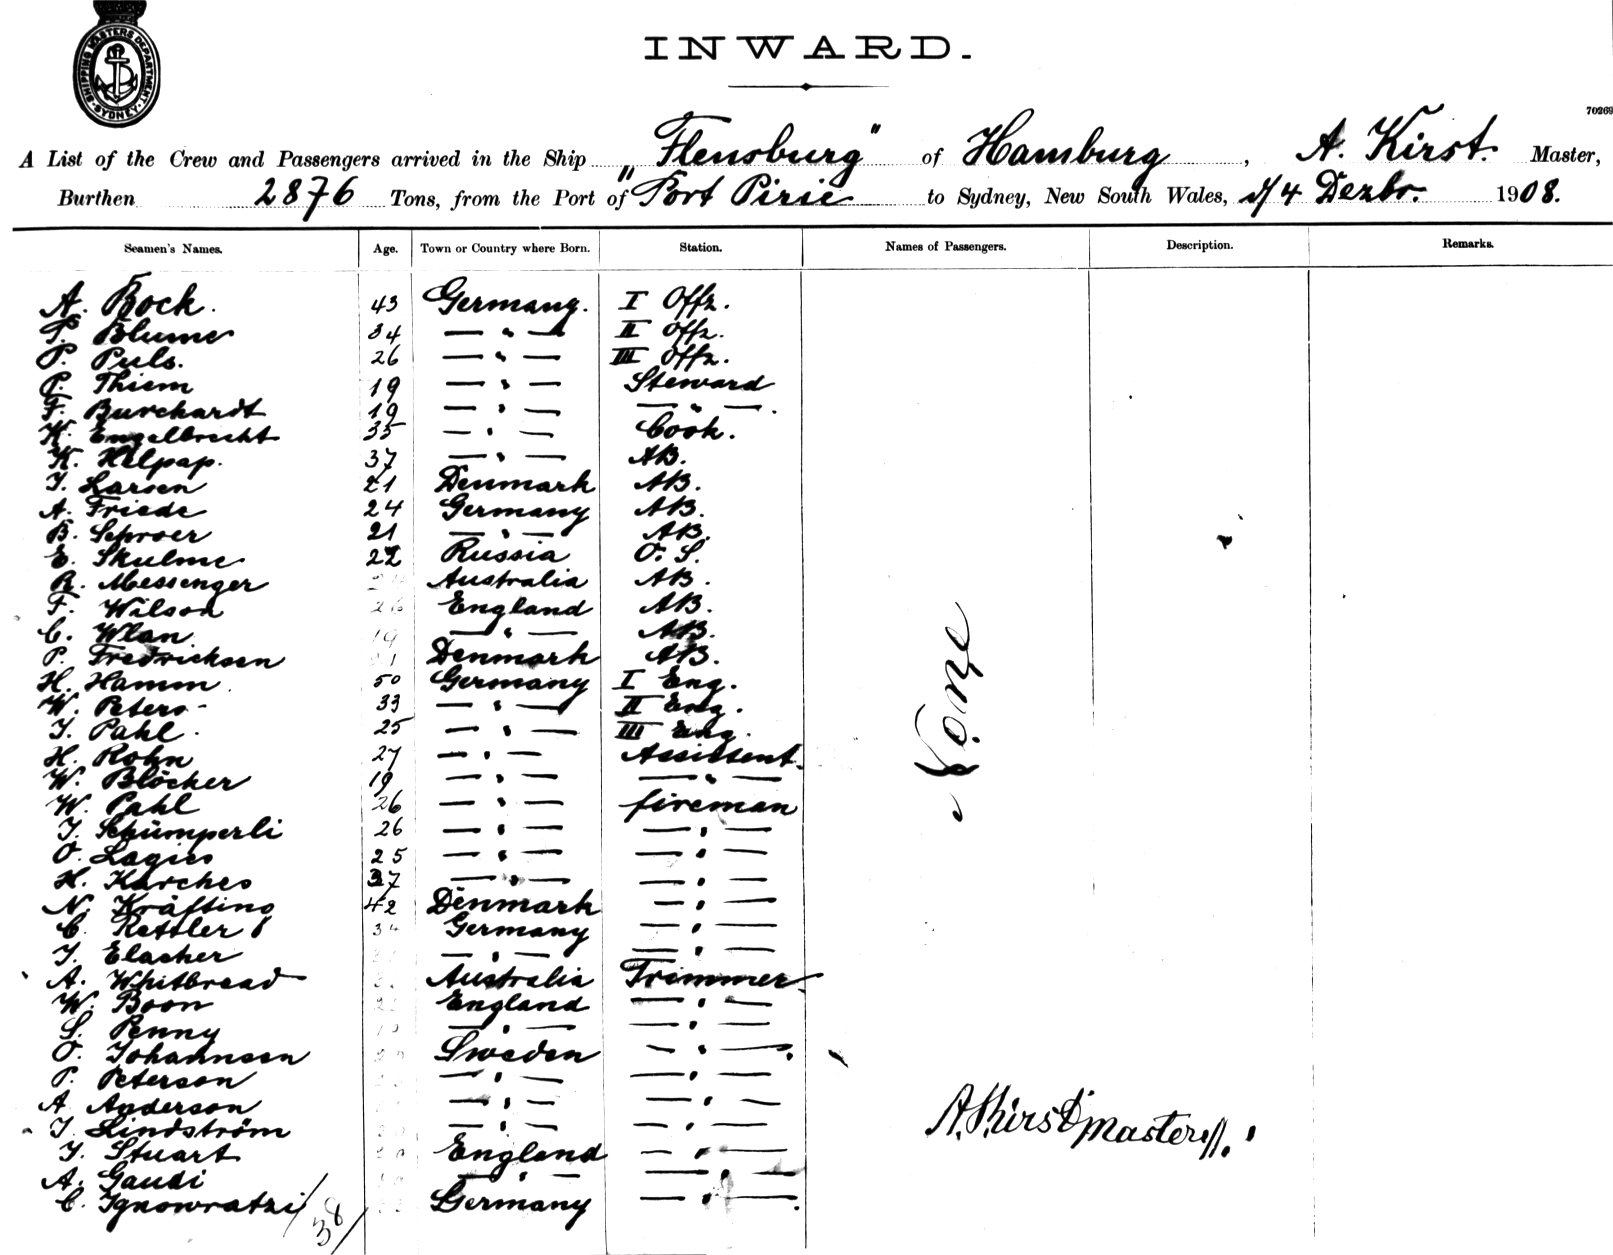 SHIPPING MASTERS DEPARTMENT
SYDNEY
INWARD.
70269
A List of the Crew and Passengers arrived in the Ship "Flensburg" of Hamburg, A. Kirst. Master,
Burthen 2876 Tons, from the Port of Port Pirie to Sydney, New South Wales, d/4 Dezbr. 1908.
Seamen's Names. Age. Town or Country where Born. Station. Names of Passengers. Description. Remarks.
A. Bock. 43 Germany. I Offz.
P. Blume 34 — " — II Offz.
P. Puls. 26 — " — III Offz.
P. Thiem 19 — " — Steward
F. Burchardt 19 — " — — " —.
K. Engelbrecht 35 — " — Cook.
K. Helpap. 37 — " — AB.
J. Larsen 21 Denmark AB.
A. Friede 24 Germany AB.
B. Schroer 21 — " — AB.
E. Skulme 22 Russia O. S.
R. Messenger Australia AB.
F. Wilson 26 England AB.
C. Wlan. 19 — " — AB.
P. Fredricksen Denmark AB.
H. Hamm. 50 Germany I Eng.
W. Peters 33 — " — II Eng.
J. Pahl. 25 — " — III Eng.
H. Rohn 27 — " — Assistent.
W. Blöcker 19 — " — — " —
W. Pahl 26 — " — fireman
J. Schümperli 26 — " — — " —
O. Lagies 25 — " — — " —
H. Karches 37 — " — — " —
N. Kräfting 42 Denmark — " —
C. Kettler 34 Germany — " —
J. Elacher — " — — " —
A. Whitbread Australia Trimmer.
W. Boon England — " —
S. Penny — " — — " —
O. Johannsen Sweden — " —.
P. Peterson — " — — " —
A. Anderson — " — — " —
J. Lindström — " — — " —
J. Stuart England — " —
A. Gaudi — " — — " —
C. Ignowratzki Germany — " —.
38
None
A. Kirst master